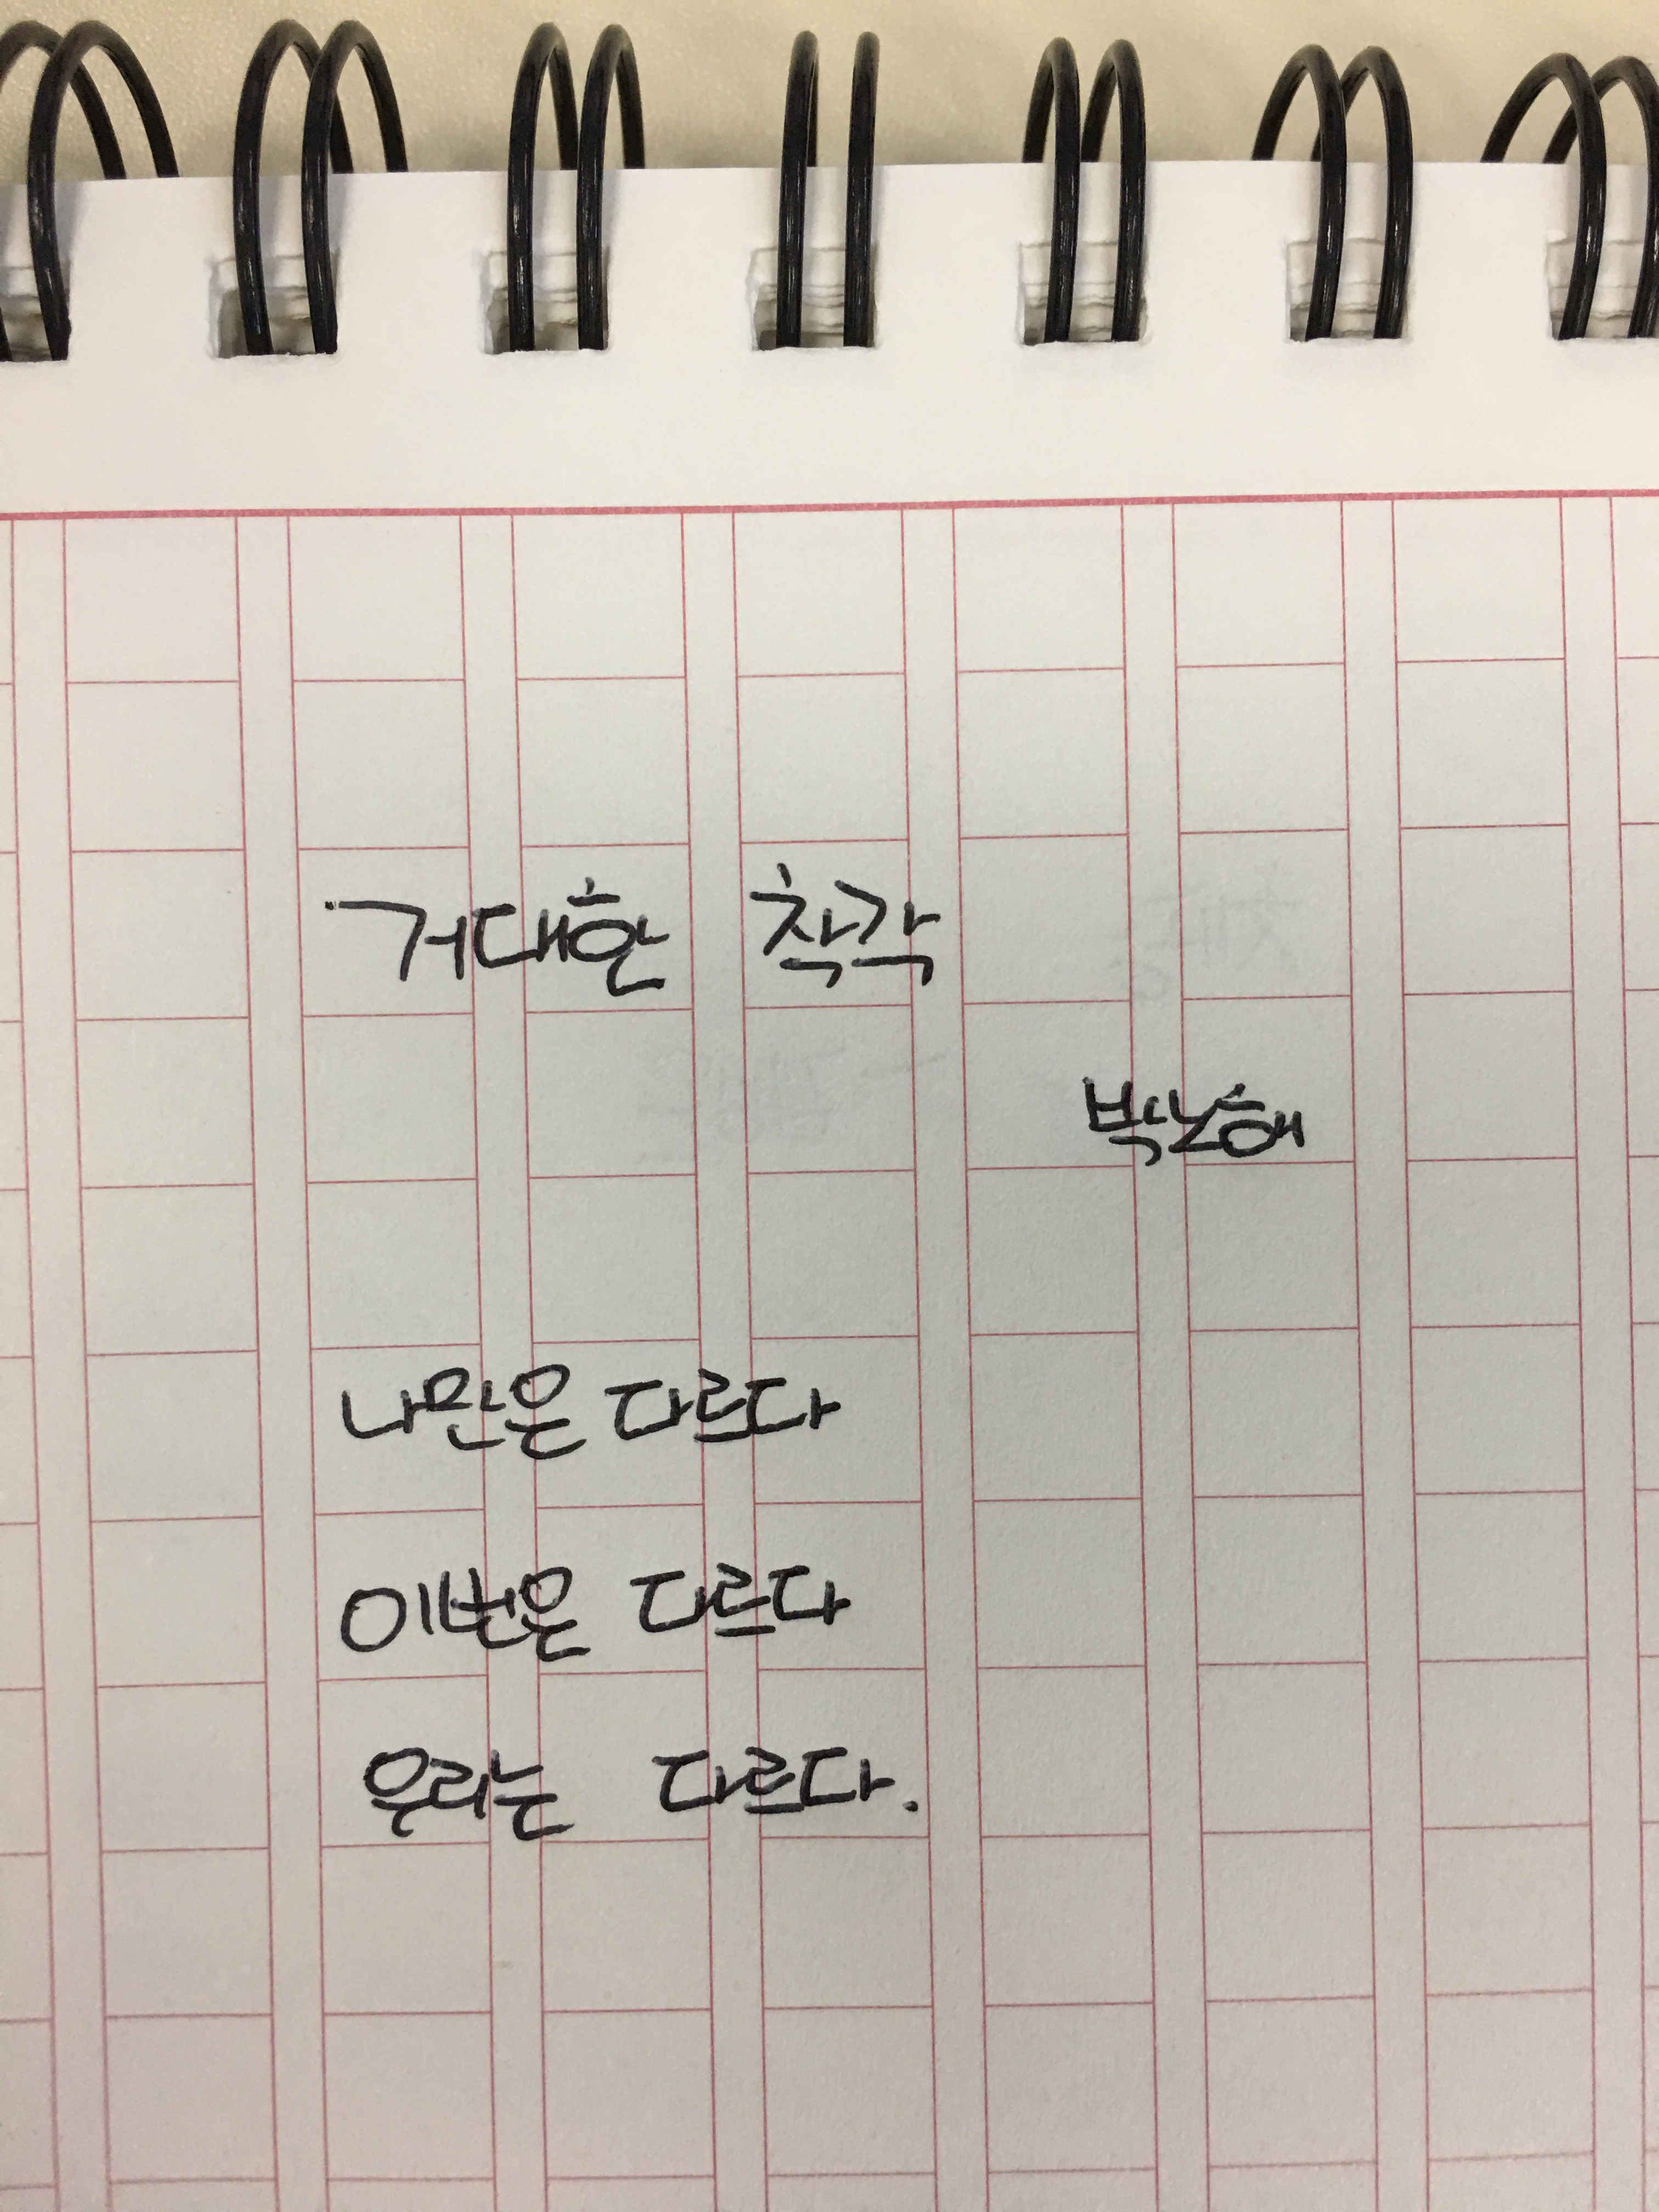 거대한 착각
박노해
나만은 다르다
이번은 다르다
우리는 다르다.